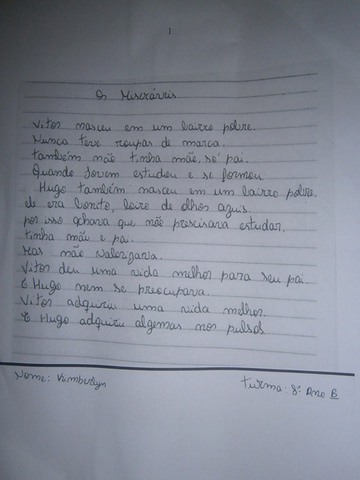 1
Os Miseráveis
Vitor nasceu em um bairro pobre.
Nunca teve roupas de marca.
também não tinha mãe, só pai.
Quando jovem estudou e se formou
Hugo também nasceu em um bairro pobre,
ele era bonito, loiro de olhos azuis.
por isso achava que não precisava estudar.
tinha mãe e pai.
Mas não valorizava.
Vitor deu uma vida melhor para seu pai.
E Hugo nem se preocupava.
Vitor adquiriu uma vida melhor.
E Hugo adquiriu algemas nos pulsos.
Nome: Kimberlyn
turma: 8º Ano B